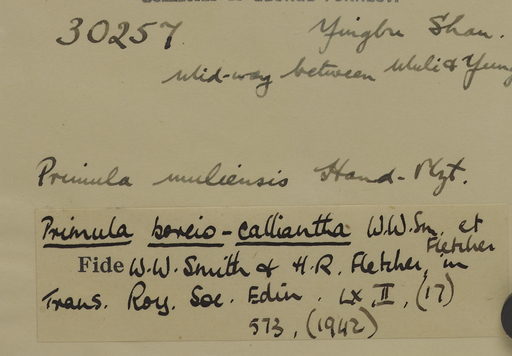 30257 Yingbu Shan.
Mid-way between Muli & Yung
Primula muliensis Hand-Mzt.
Primula boreio-calliantha W.W.Sm. et Fletcher
Fide W.W. Smith & H.R. Fletcher, in
Trans. Roy. Soc. Edin. LX, II, (17)
573, (1942)